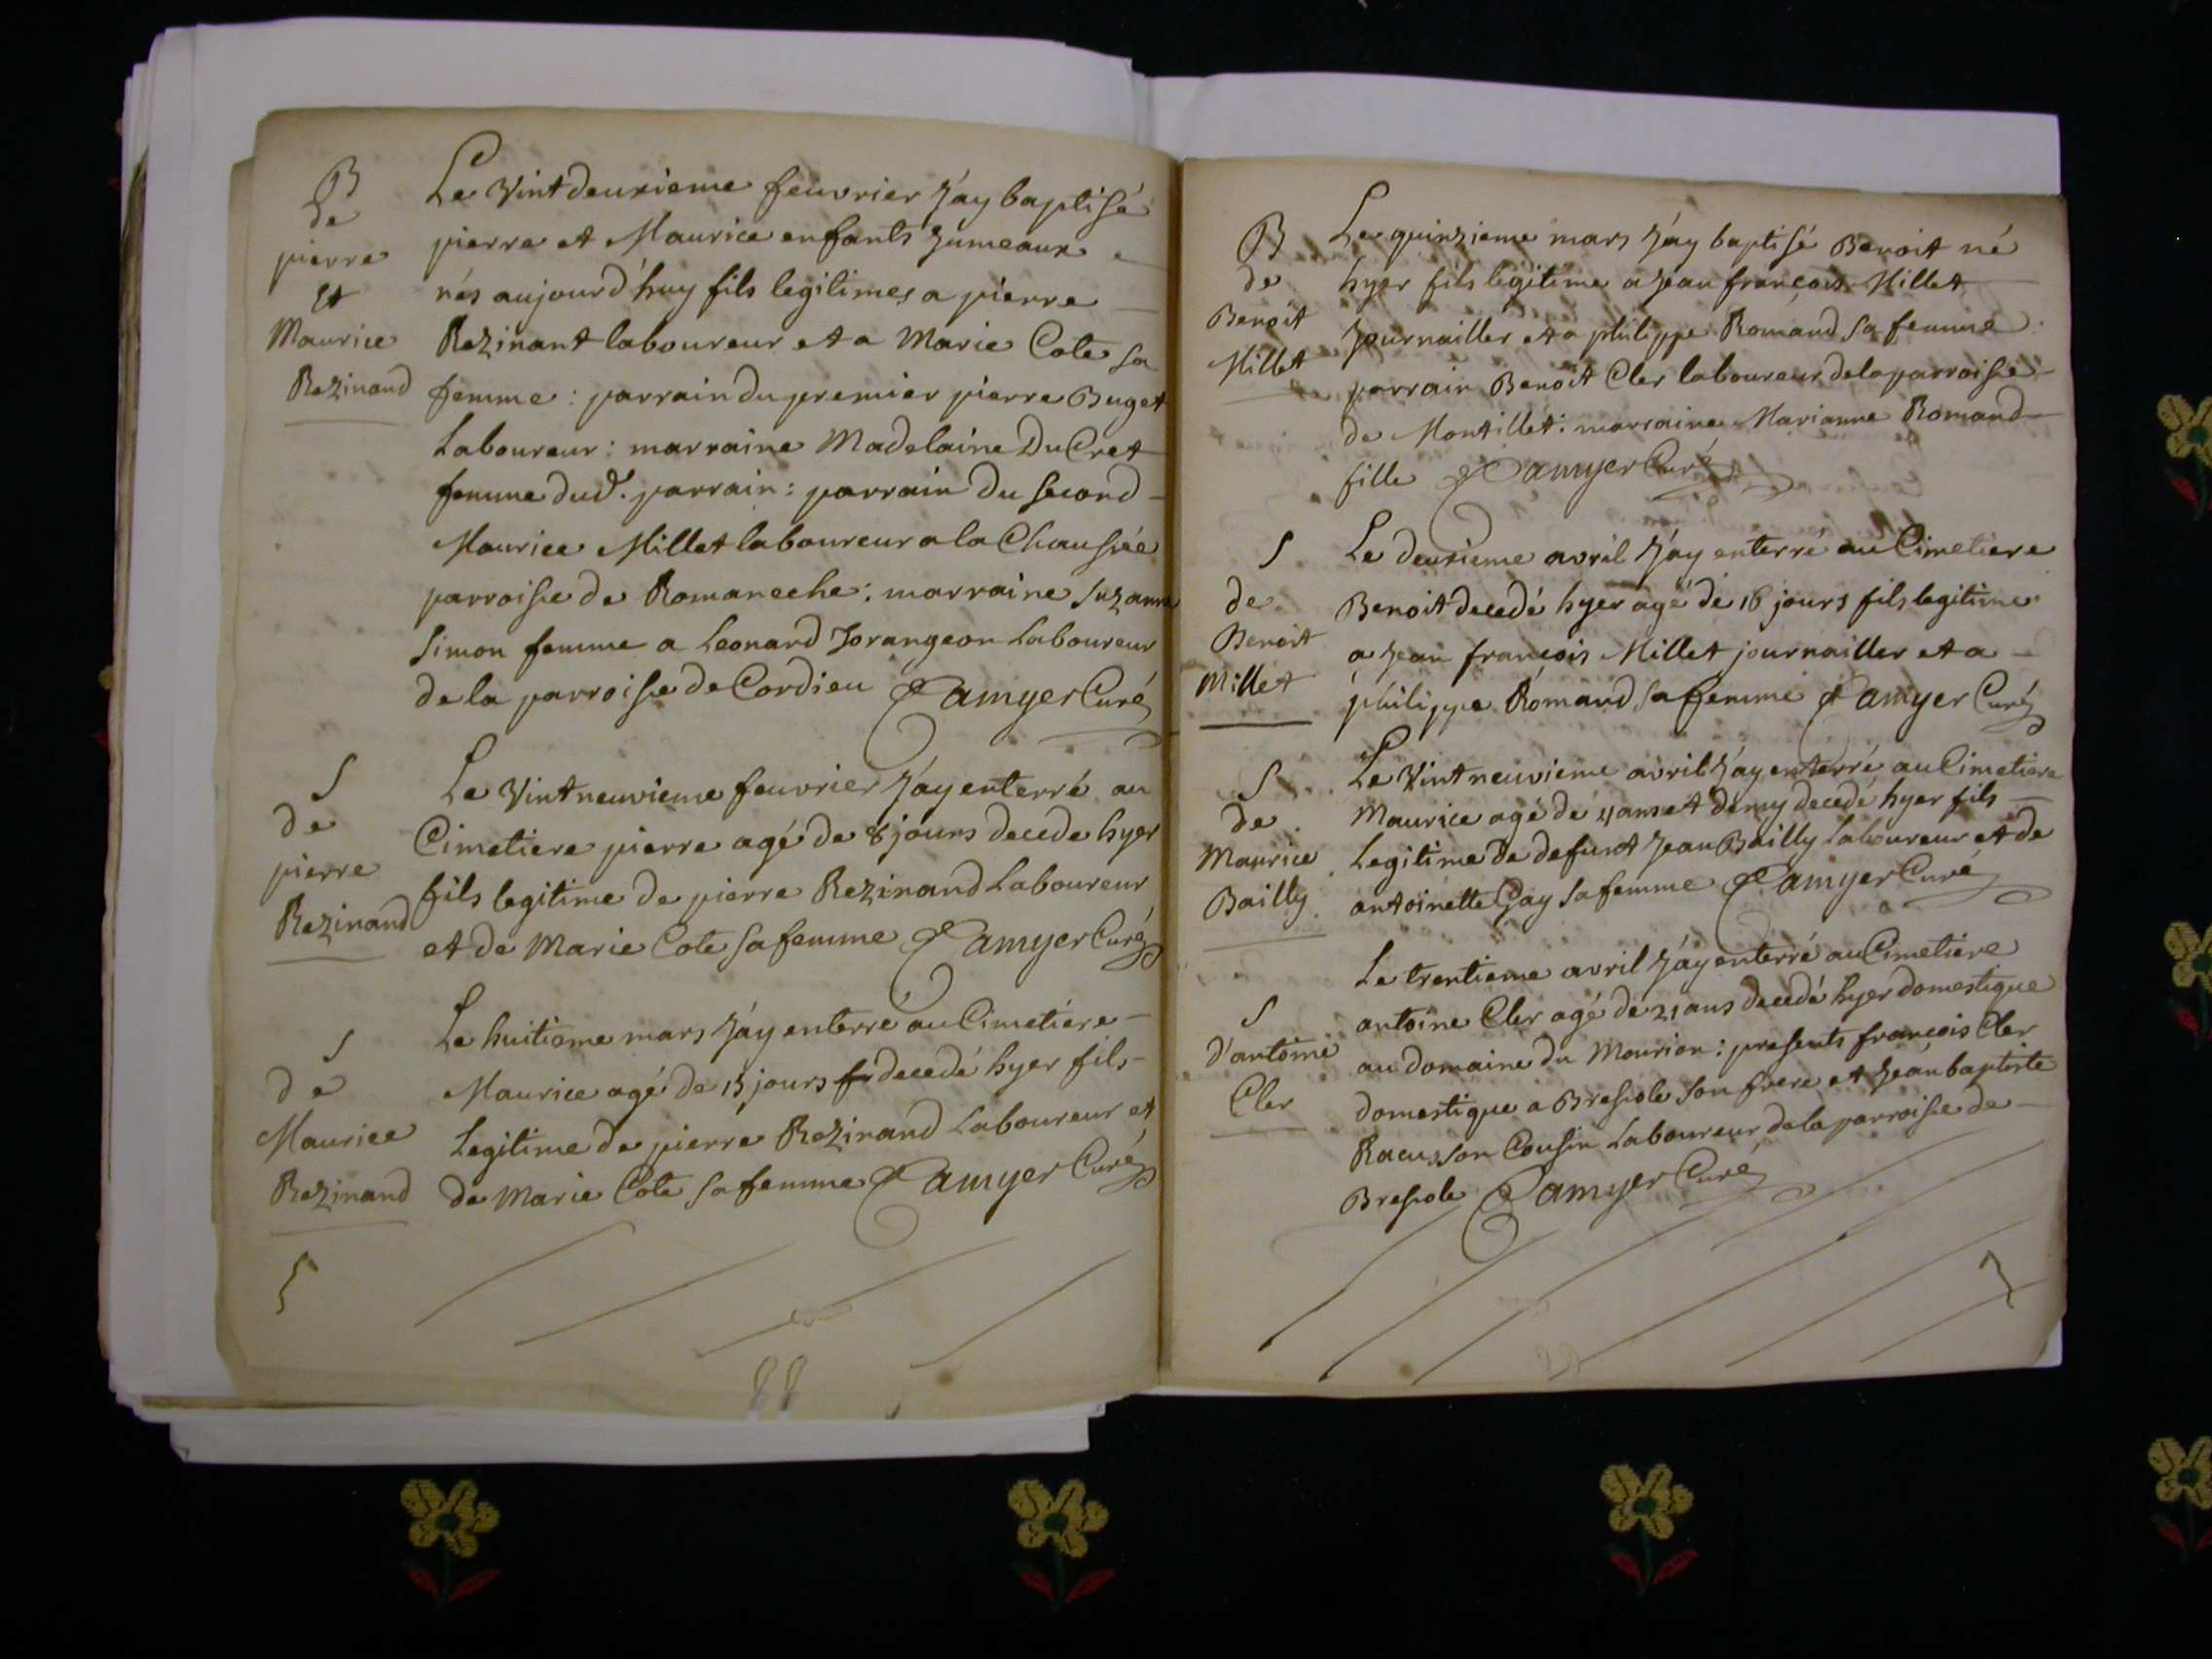 B
de
pierre
Et
Maurice
Rezinand
Le Vint deuxieme feuvrier j'ay baptisé
pierre et Maurice enfants Jumeaux
nés aujourd'huy fils legitimes a pierre
Rezinant laboureur et a Marie Cote sa
femme : parrain du premier pierre Buget
Laboureur : marraine Madelaine DuCret
femme dud. parrain : parrain du second
Maurice Millet laboureur a la Chaussée
parroisse de Romaneche : marraine Suzanne
Simon femme a Leonard Jorangeon Laboureur
de la parroisse de Cordieu Pamyer Curé
S
de
pierre
Rezinand
Le Vint neuvieme feuvrier j'ay enterré au
Cimetiere pierre agé de 8 jours decede hyer
fils legitime de pierre Rezinand Laboureur
et de Marie Cote sa femme Pamyer Curé
S
de
Maurice
Rezinand
Le huitieme mars j'ay enterré au Cimetiere
Maurice agé de 15 jours fi decedé hyer fils
Legitime de pierre Rezinand Laboureur et
de Marie Cote sa femme Pamyer Curé
B
de
Benoit
Millet
Le quinzieme mars j'ay baptisé Benoit né
hyer fils legitime a Jean françois Millet
Journailler et a philippe Romand sa femme
parrain Benoit Cler laboureur de la parroisse
de Montillet : marraine Marianne Romand
fille Pamyer Curé
S
de
Benoit
Millet
Le deuxieme avril j'ay enterré au Cimetiere
Benoit decedé hyer agé de 16 jours fils legitime
a Jean françois Millet journailler et a
philippe Romand sa femme Pamyer Curé
S
de
Maurice
Bailly
Le Vint neuvieme avril j'ay enterré au Cimetiere
Maurice agé de 4 ans et demy decedé hyer fils
Legitime de defunt Jean Bailly laboureur et de
antoinette Gay sa femme Pamyer Curé
S
d'antoine
Cler
Le trentieme avril j'ay enterré au Cimetiere
antoine Cler agé de 21 ans decedé hyer domestique
au domaine du Mourion : presents françois Cler
domestique a Bressole son frere et Jean baptiste
Racus son Cousin Laboureur de la parroisse de
Bressole Pamyer Curé